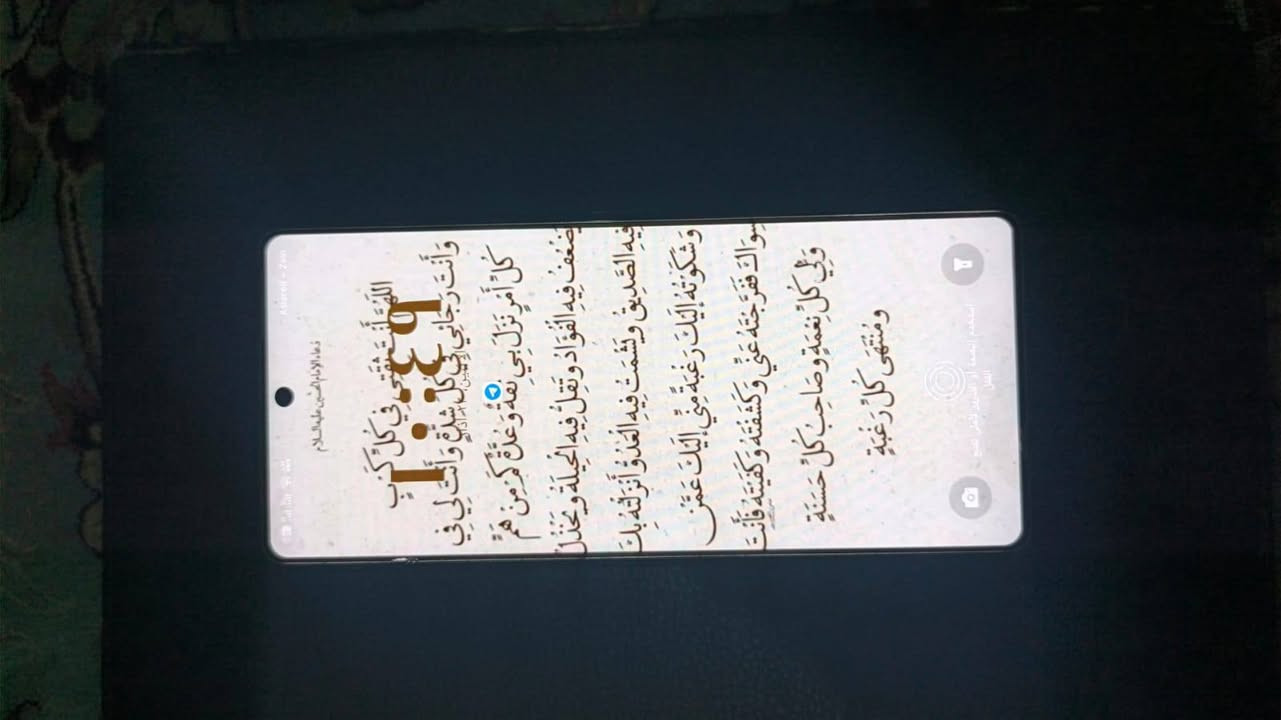 Asiacell — Zain
دعاء الإمام الحسين عليه السلام
اللّهُمَّ أَنْتَ ثِقَتِي فِي كُلِّ كَرْبٍ
١٠:٤٩
وَأَنْتَ رَجَائِي فِي كُلِّ شِدَّةٍ وَأَنْتَ لِي فِي
كُلِّ أَمْرٍ نَزَلَ بِي ثِقَةٌ وَعُدَّةٌ كَمْ مِنْ هَمٍّ
يَضْعُفُ فِيهِ الْفُؤَادُ وَتَقِلُّ فِيهِ الْحِيلَةُ وَيَخْذُلُ
فِيهِ الصَّدِيقُ وَيَشْمَتُ فِيهِ الْعَدُوُّ أَنْزَلْتُهُ بِكَ
وَشَكَوْتُهُ إِلَيْكَ رَغْبَةً مِنِّي إِلَيْكَ عَمَّنْ
سِوَاكَ فَفَرَّجْتَهُ عَنِّي وَكَشَفْتَهُ وَكَفَيْتَهُ فَأَنْتَ
وَلِيُّ كُلِّ نِعْمَةٍ وَصَاحِبُ كُلِّ حَسَنَةٍ
وَمُنْتَهَى كُلِّ رَغْبَةٍ
استخدم البصمة أو اسحب لأعلى لفتح
القفل